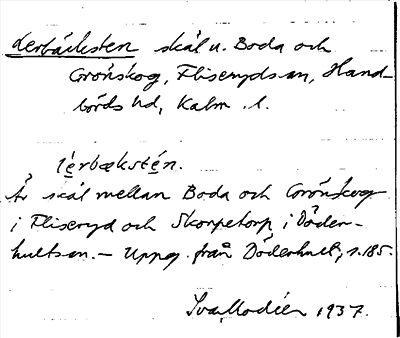 Lerbäcksten skäl u. Boda och
Grönskog, Fliseryds sn, Hand-
börds hd, Kalm. l.
lèrbækstén.
Är skäl mellan Boda och Grönskog
i Fliseryd och Skorpetorp i Döder-
hults sn. – Uppg. från Döderhult, s. 185.
Ivar Modéer 1937.